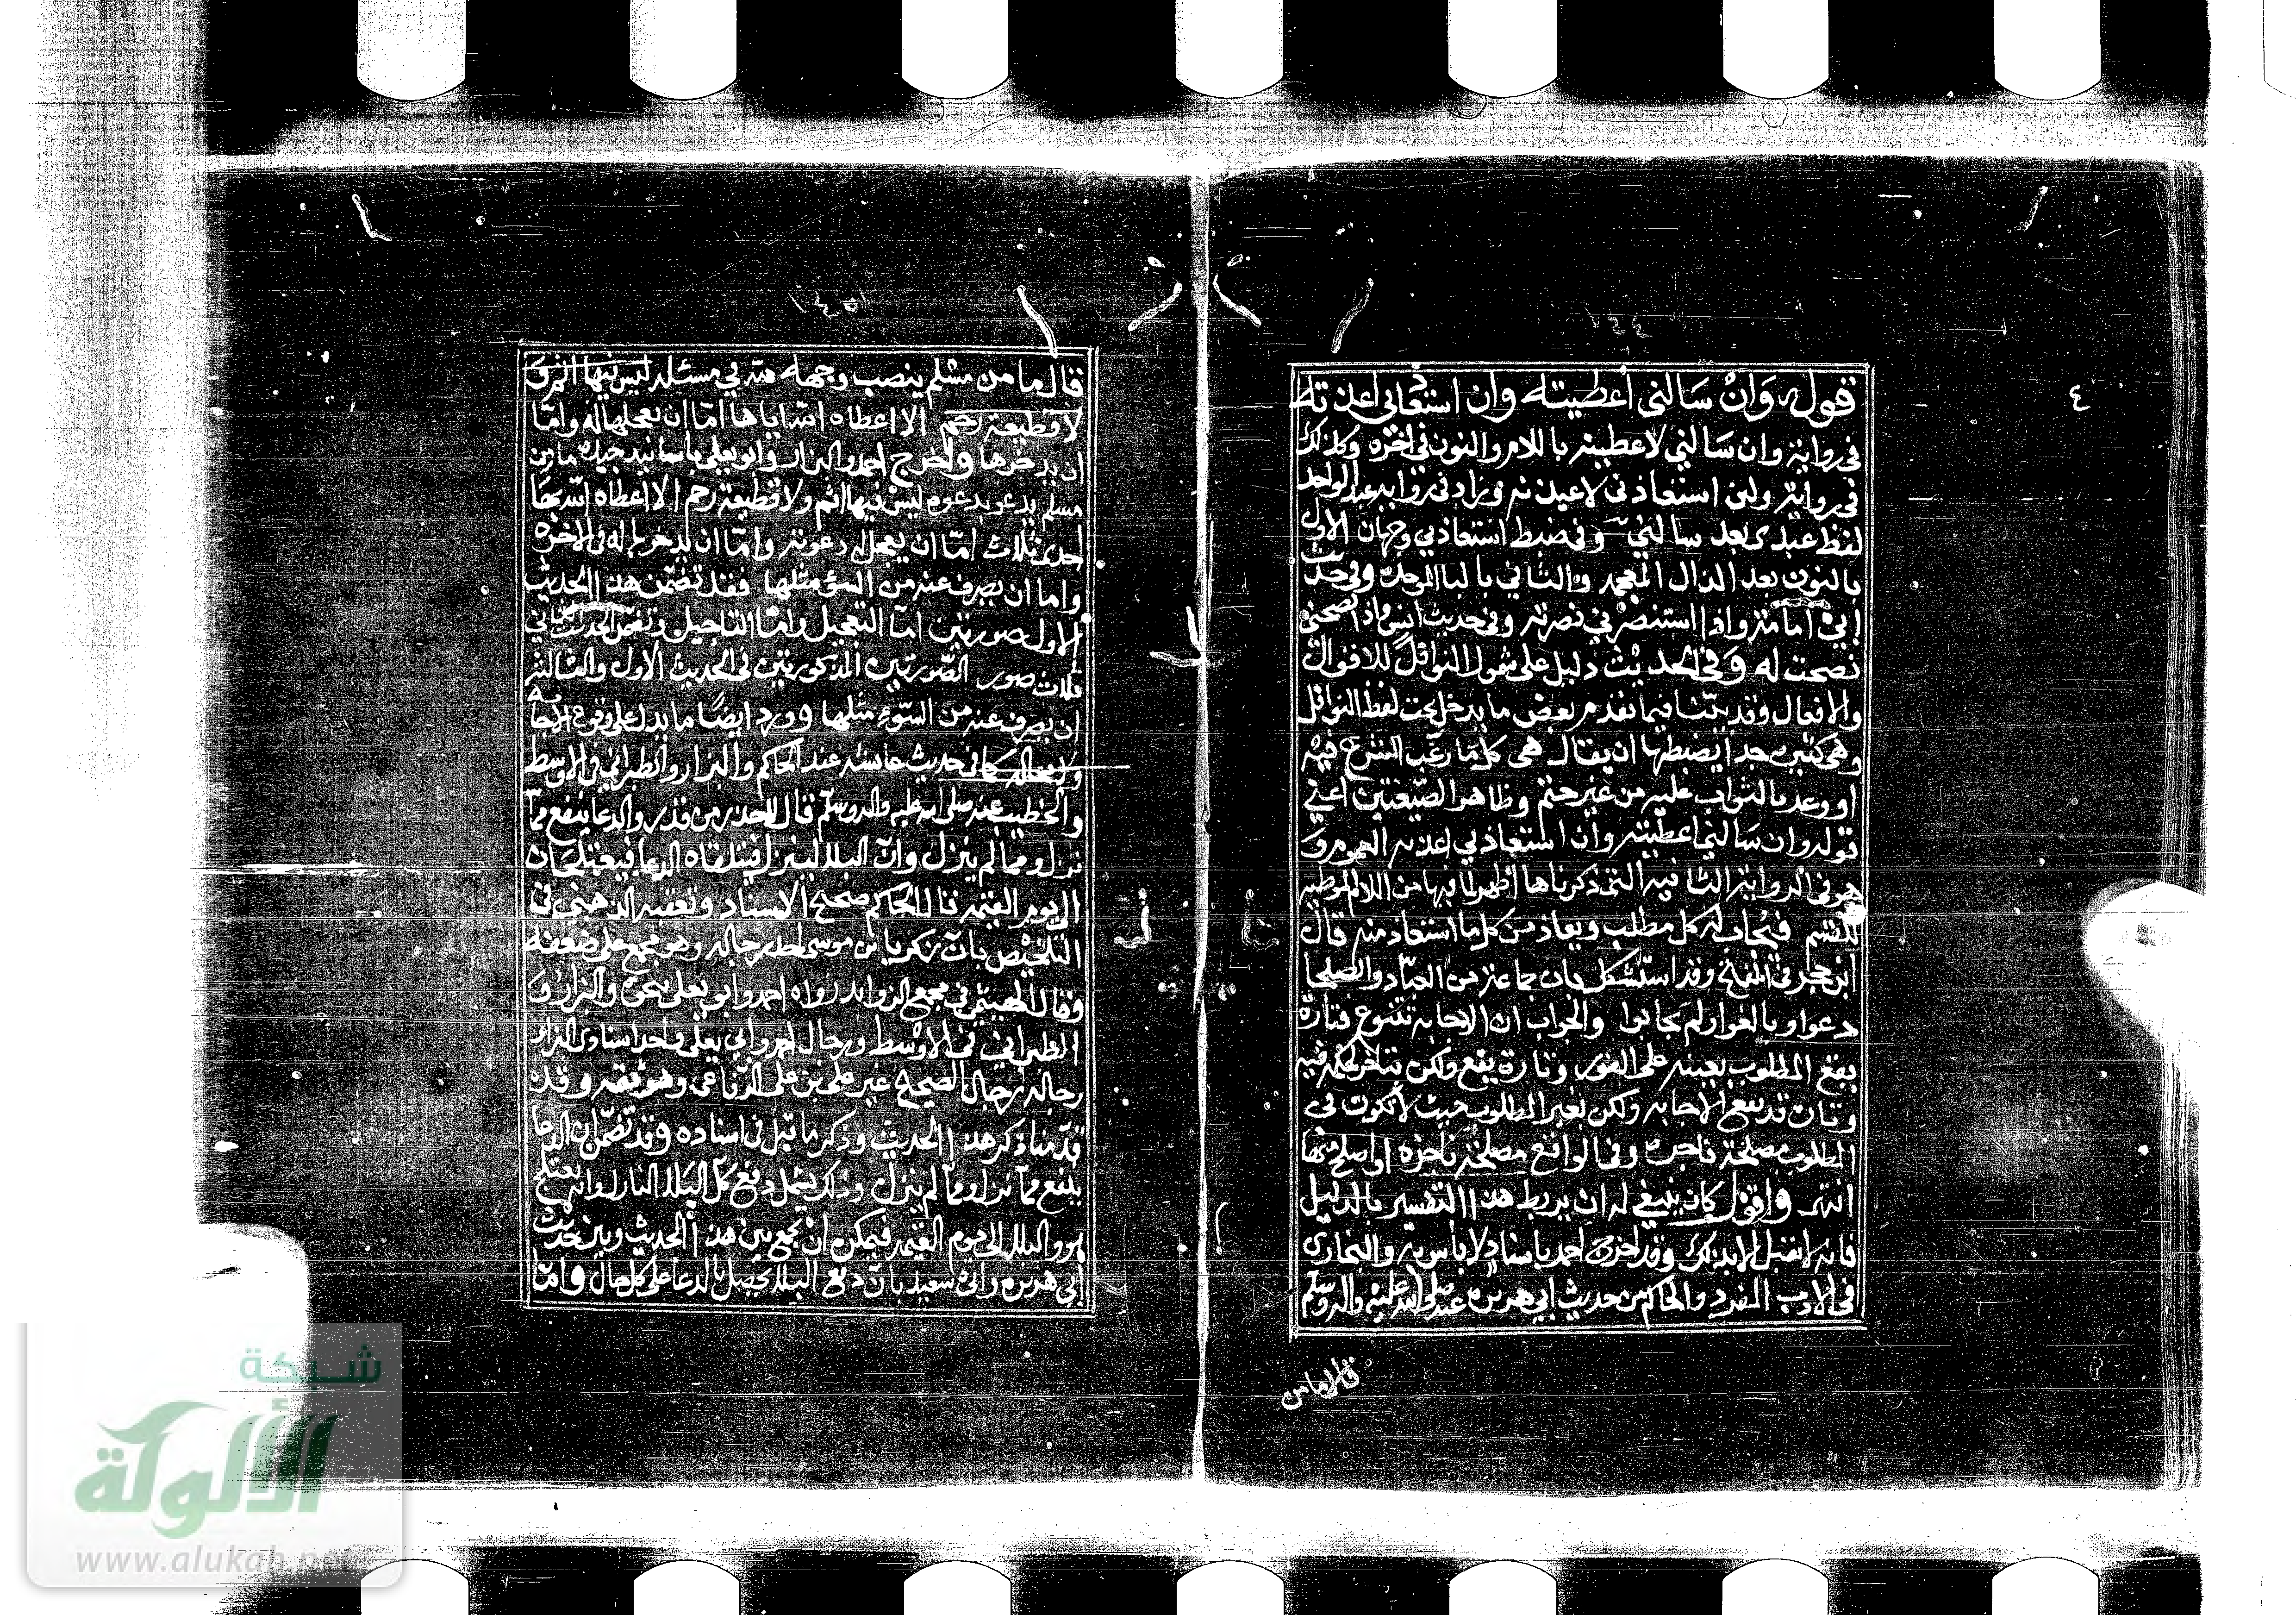 ٤
قوله وَانْ سَالني أعطيته وان استعاذني اعذته
فى رواية وان سَالني لاعطينه باللام والنون فى اخره وكذلك
فى رواية ولئن استعاذنى لاعيذنه وزاد فى رواية عبد الواحد
لفظ عبدى بعد سالني وفى ضبط استعاذني وجهان الاول
بالنون بعد الذال المعجمه والثاني بالباالموحده وفى حديث
ابي امامة واذا استنصرني نصرته وفى حديث انس واذا نصحنى
نصحت له وَفى الحَديْث دليل على شمول النوافل للاقوال
والافعال وقد بحثنا فيما تقدم بعض ما يدخل تحت لفظ النوافل
وهى كثيره جدا يضبطها ان يقال هى كلما رغّب الشرع فيه
او وعد بالثواب عليه من غير حتم وظاهر الصّيغتين اعني
قوله وان سَالني اعطيته وان استعاذ بي اعذته العموم وَ
هو فى الرواية الثانيه التى ذكرناها اظهر لما فيها من اللام الموطيه
للقسم فيُجاب له كل مطلب ويعاذ من كل ما استعاذ منه قال
ابن حجر فى الفتح وقد استشكل بان جماعة من العبّاد والصلحا
دعوا وبالغوا ولم يجابوا والجواب ان الاجابه تتنوع فتارة
يقع المطلوب بعينه على الفور وتارة يقع ولكن يتاخر لحكمة فيه
وتارة قد تقع الاجابه ولكن بغير المطلوب حيث لا يكون فى
المطلوب مصلحة ناجزه وفى الواقع مصلحة ناجزه او اصلح منها
انتهى واقول كان ينبغي له ان يربط هذا التقسيم بالدليل
فانه لا يقبل الا بذلك وقد اخرج احمد باسناد لا باس به والبخارى
فى الادب المفرد والحاكم من حديث ابي هريره عنه صلى الله عليه واله وسلم
قال ما من
قال ما من مسْلم ينصب وجهه لله في مسئلة ليس فيها اثم وَ
لا قطيعة رحم الا اعطاه الله اياها امّا ان يعجلها له وامّا
ان يدخرها واخرج احمد والبزار وابو يعلى باسانيد جيده ما من
مسلم يدعو بدعوه ليس فيها اثم ولا قطيعة رحم الا اعطاه الله بها
احدى ثلاث امّا ان يعجل له دعوته وامّا ان يدخرها له فى الاخره
واما ان يصرف عنه من السوء مثلها فقد تضمّن هذا الحديث
الاول صورتين امّا التعجيل وامّا التاجيل وتضمن الحديث الثاني
ثلاث صور الصّورتين المذكورتين فى الحديث الاول والثالثة
ان يصرف عنه من السّوء مثلها وورد ايضًا ما يدل على وقوع الاجابه
ولا محاله كما فى حديث عائشه عند الحاكم والبزار والطبراني فى الاوسط
والخطيب عنه صلى الله عليه واله وسلم قال لا حذر من قدر والدعا ينفع ممّا
نزل ومما لم ينزل وانّ البلا لينزل فيتلقاه الدعا فيعتلجان
الى يوم القيمه قال الحاكم صحيح الاسناد وتعقبه الذهبي فى
التلخيص بانّ زكريا بن موسى احد رجاله وهو مجمع على ضعفه
وقال الهيثمي فى مجمع الزوائد رواه احمد وابو يعلى بنحوه والبزار وَ
الطبراني فى الاوسط ورجال احمد وابي يعلى واحد اسنادى البزار
رجاله رجال الصحيح غير على بن على الرّفاعى وهو ثقه وقد
قدّمنا ذكر هذا الحديث وذكر ما قيل فى اسناده وقد تضمّن ان الدعا
ينفع ممّا نزل وممّا لم ينزل وذلك يشمل دفع كلّ البلا النازل وانه يعتلج
هو والبلا الى يوم القيمه فيمكن ان يجمع بين هذا الحديث وبين حديث
ابي هريره وابى سعيد بانّ دفع البلا يحصل بالدعا على كل حال وامّا
شبكة
الألوكة
www.alukah.net